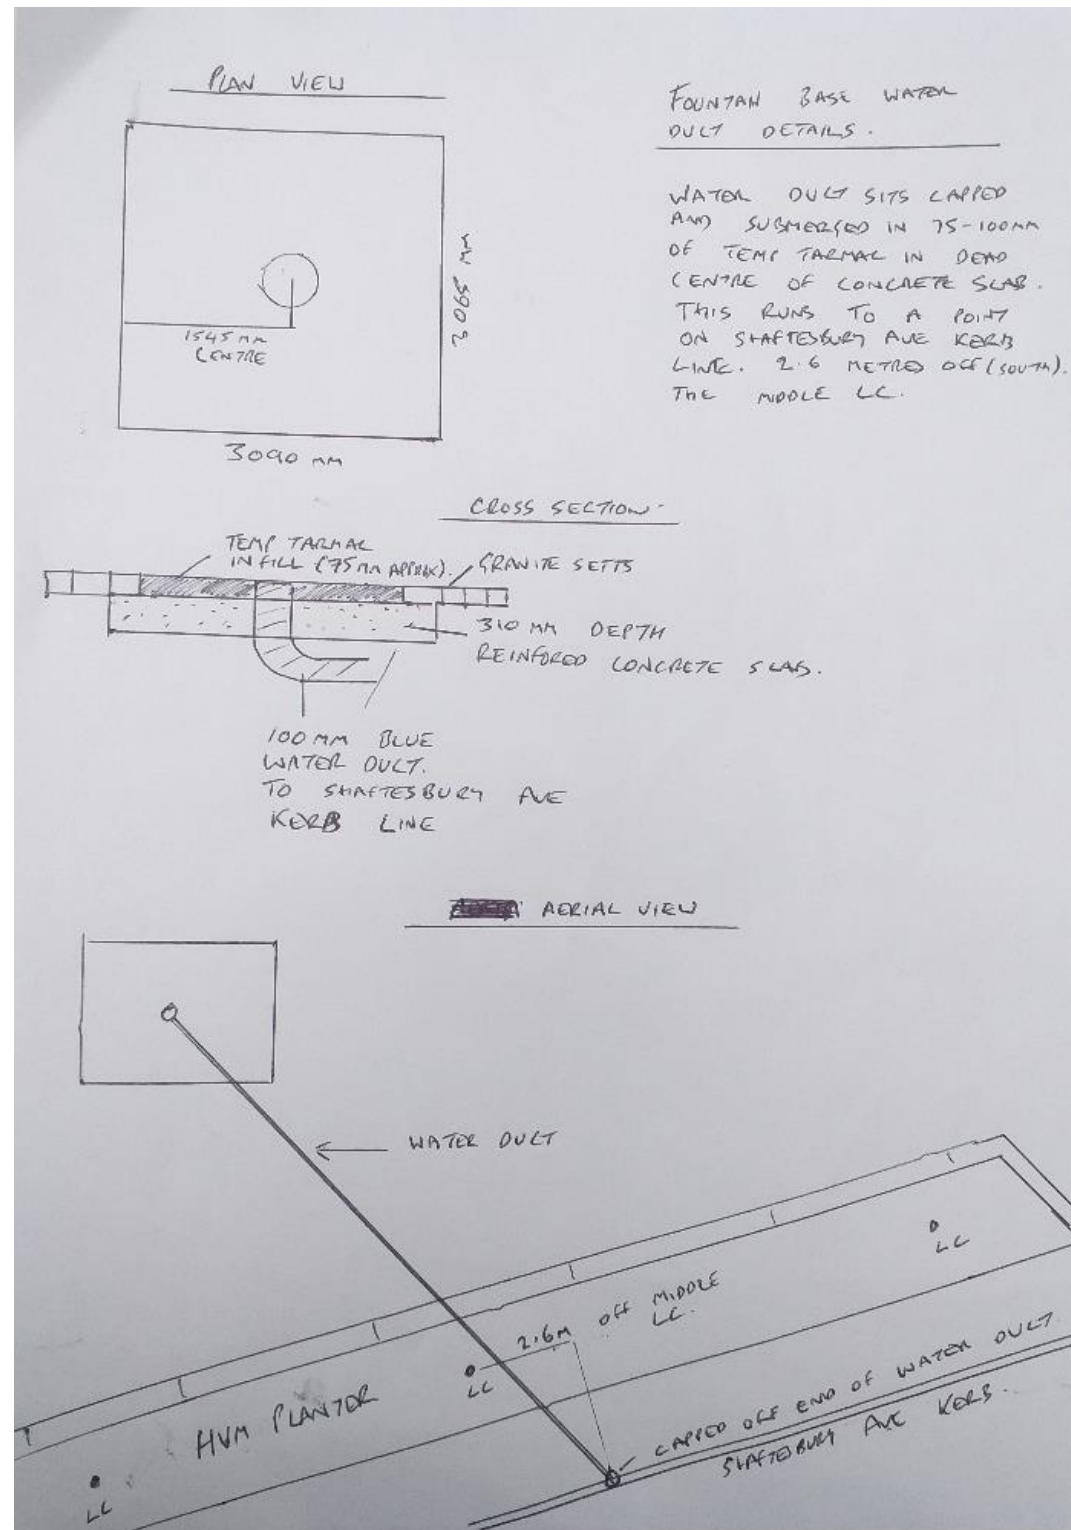 PLAN VIEW
1545 MM
CENTRE
3090 MM
3090 MM
FOUNTAN BASE WATER
DUCT DETAILS.
WATER DUCT SITS CAPPED
AND SUBMERGED IN 75-100MM
OF TEMP TARMAC IN DEAD
CENTRE OF CONCRETE SLAB.
THIS RUNS TO A POINT
ON SHAFTESBURY AVE KERB
LINE. 2.6 METRES OFF (SOUTH).
THE MIDDLE LC.
CROSS SECTION-
TEMP TARMAC
INFILL (75MM APPROX).
GRANITE SETTS
310 MM DEPTH
REINFORED CONCRETE SLAB.
100 MM BLUE
WATER DUCT.
TO SHAFTESBURY AVE
KERB LINE
AERIAL VIEW
WATER DUCT
LC
2.6M OFF MIDDLE
LC.
LC
HVM PLANTER
LC
CAPPED OFF END OF WATER DUCT
SHAFTESBURY AVE KERB.